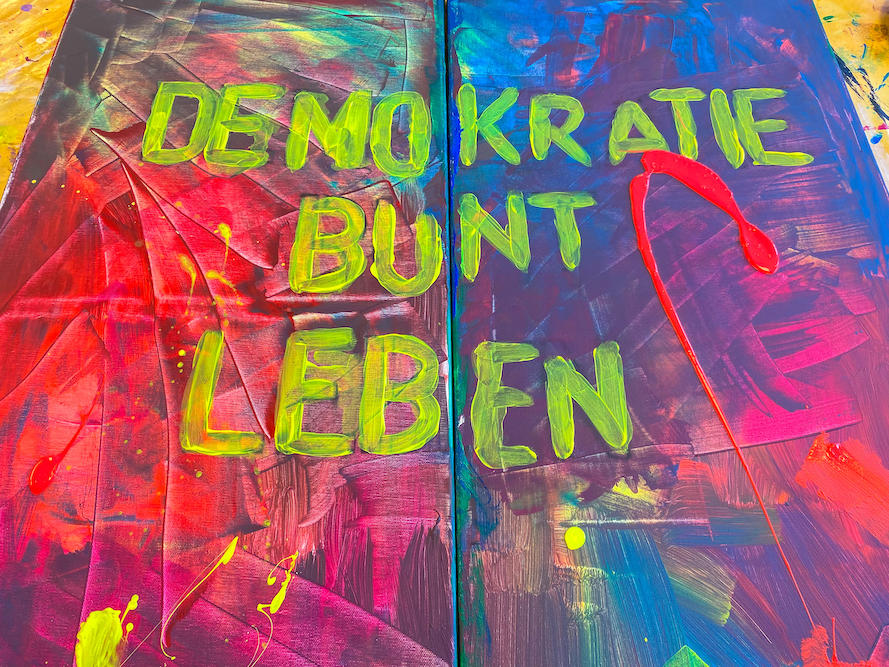 DEMOKRATIE
BUNT
LEBEN